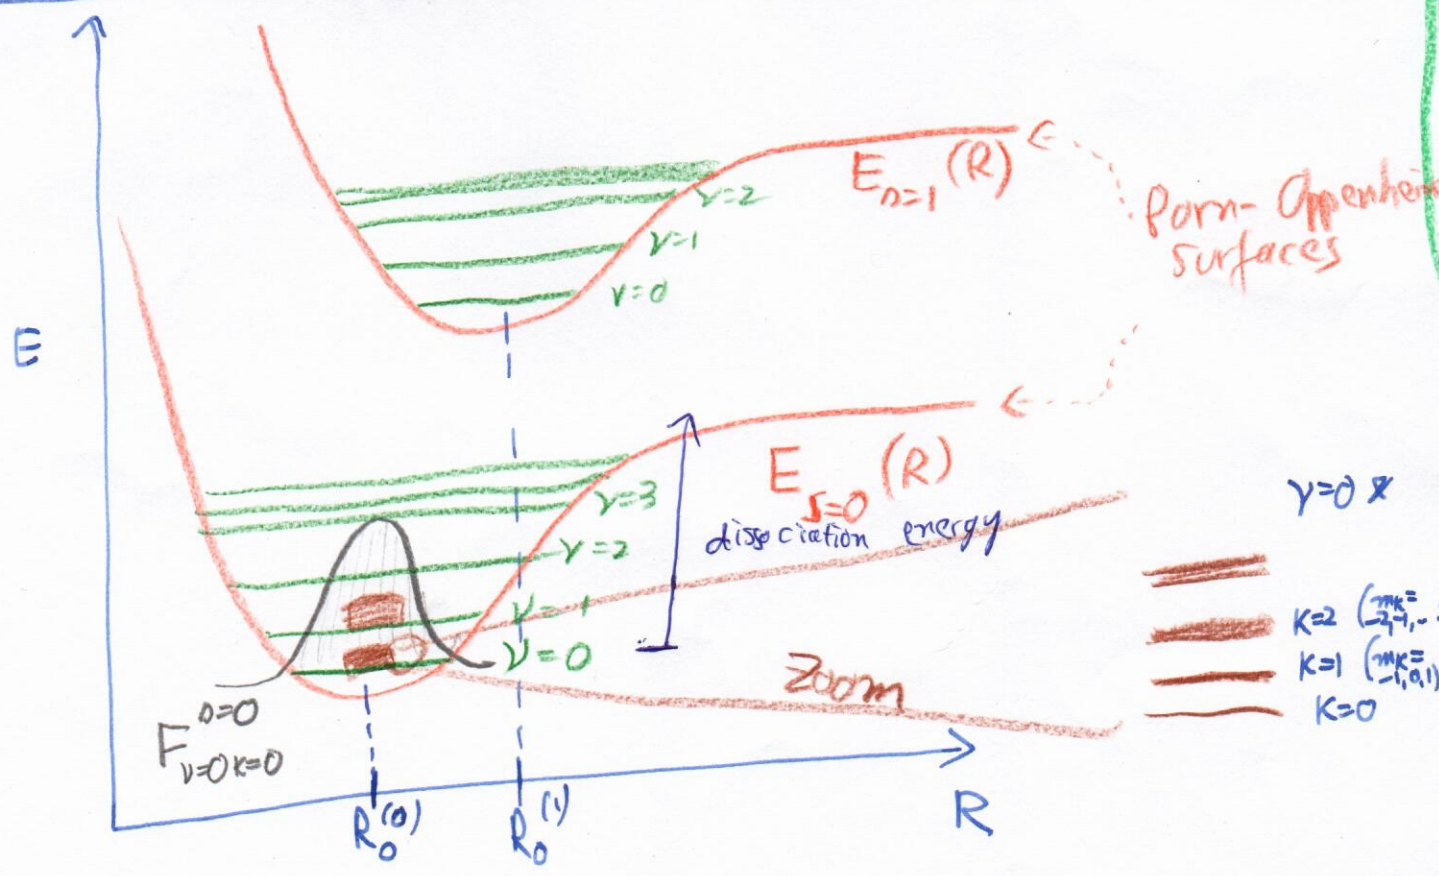 E
E_{n=1}(R)
Born-Oppenhei
surfaces
ν=2
ν=1
ν=0
E_{s=0}(R)
dissociation energy
ν=3
ν=2
ν=1
ν=0
Zoom
F^{n=0}_{ν=0 K=0}
R_0^{(0)}
R_0^{(1)}
R
ν=0
K=2 (m_K=
-2,-1,..
K=1 (m_K=
-1,0,1)
K=0